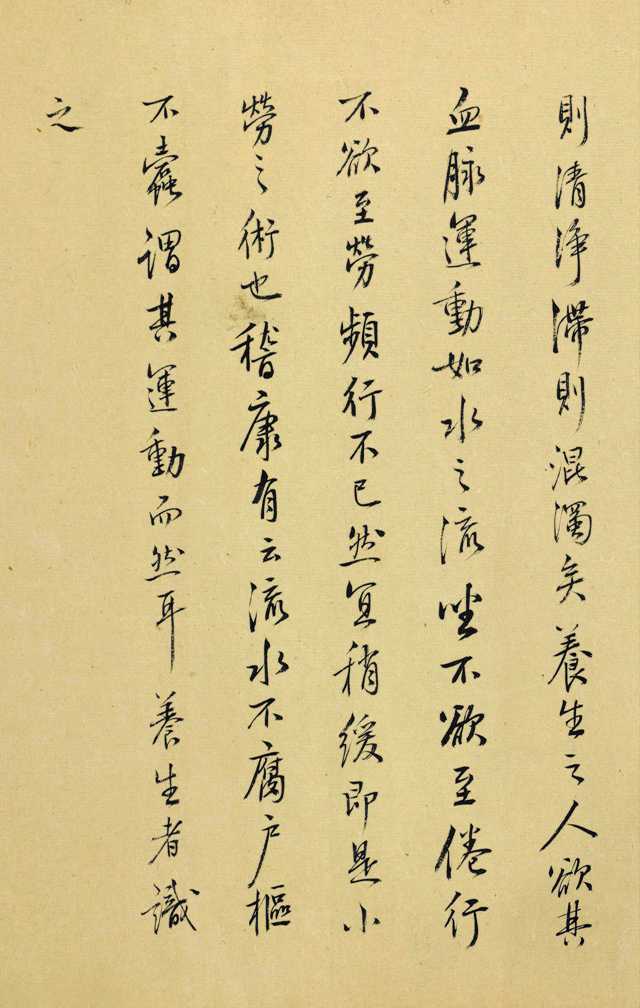 則清淨滯則混濁矣養生之人欲其
血脉運動如水之流坐不欲至倦行
不欲至勞頻行不已然宜稍緩即是小
勞之術也稽康有云流水不腐户樞
不蠹謂其運動而然耳養生者識
之